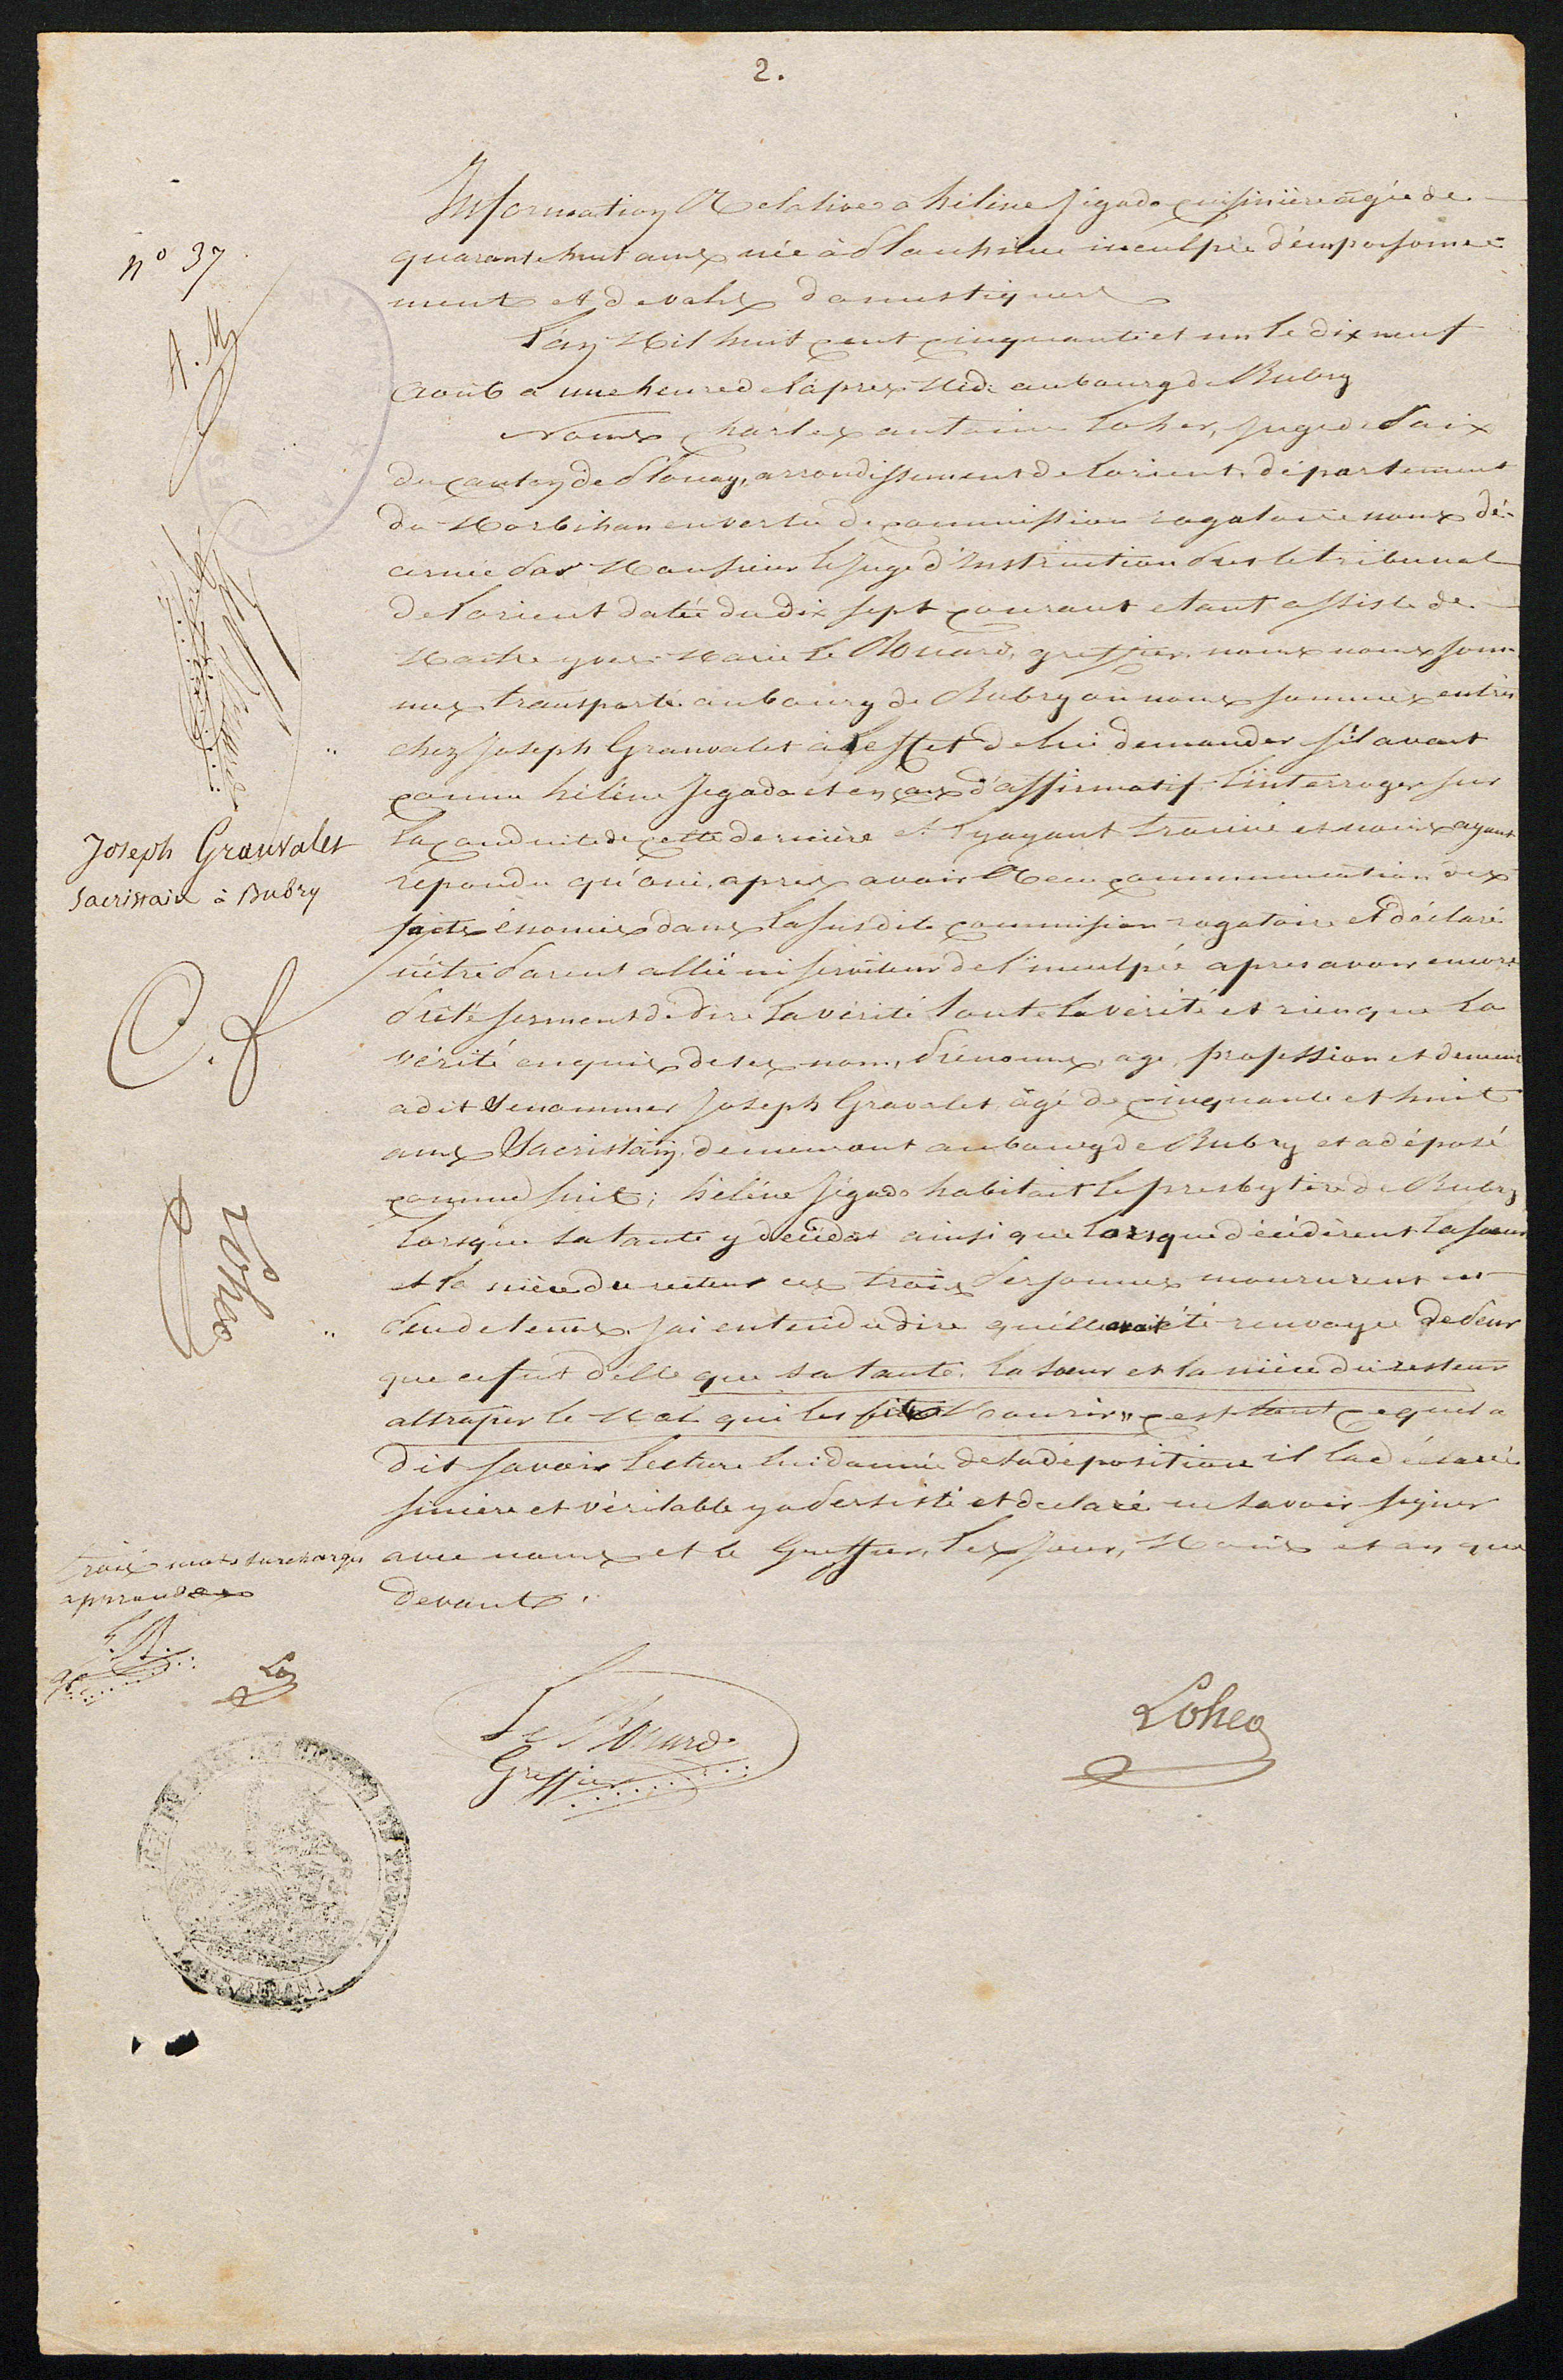 2.
n° 37
A. M
Information Relative a hélène Jégado cuisinière agée de
quarante huit ans née à Plouhinec inculpée d'empoisonne-
ment et de vols domestiques
L'an Mil huit cent cinquante et un le dix neuf
Août a une heure de l'après Midi au bourg de Bubry
Nous Charles antoine Loher, juge de Paix
du canton de Plouay, arrondissement de Lorient, département
du Morbihan en vertu de commission rogatoire nous dé-
cernée par Monsieur le juge d'Instruction près le tribunal
de Lorient datée du dix sept courant étant assisté de
Maitre yves Marie Le Bouard, greffier nous nous som
mes transporté au bourg de Bubry où nous sommes entrés
chez Joseph Granvalet à l'effet de lui demander s'il avait
connu hélène Jégado et en cas d'affirmatif l'interroger sur
la conduite de cette dernière et l'y ayant trouvé et nous ayant
répondu qu'oui, après avoir Reçu communication des
faits énoncés dans la susdite commission rogatoire et déclaré
n'être parent allié ni serviteur de l'inculpée après avoir encore
prêté serment de dire la vérité toute la vérité et rien que la
vérité enquis de ses nom, prénoms, age, profession et demeure
a dit se nommer Joseph Gravalet, âgé de cinquante et huit
ans Sacristain, demeurant au bourg de Bubry et a déposé
comme suit; hélène Jégado habitait le presbytère de Bubry
lorsque sa tante y décéda ainsi que lorsque décédèrent la sœur
et la nièce du recteur ces trois personnes moururent en
peu de tems. J'ai entendu dire qu'elle avait été renvoyée de peur
que ce fut d'elle que sa tante, la sœur et la nièce du recteur
attraper le Mal qui les fit Mourir" c'est tout ce qu'il a
dit savoir lecture lui donnée de sa déposition il l'a déclaré
sincère et véritable y a persisté et déclaré ne savoir signer
avec nous et le Greffier, les jour, Mois et an que
devant.
Joseph Granvalet
Sacristain à Bubry
C. f
Loher
trois mots surchargés
approuvés
L. B.
Lo
Le Bouard
Greffier
Loher